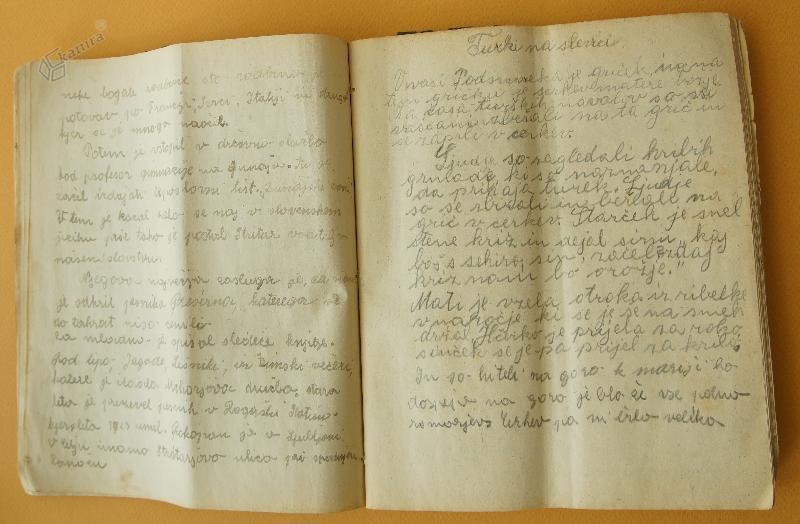 kamra
neke bogate rodbine ste rodbino je
potoval po Franciji, Italiji in drugod
kjer se je mnogo naučil.
Potem je vstopil v državno službo
kod profesor gimnazije na Dunaju. Tu je
začel izdajati leposlovni list „Dunajski zvon"
V tem je kazal kako se naj v slovenskem
jeziku piše tako je postal Stritar
našem slovstvu.
Njegova največja zasluga je, da nam
je odkril pesnika Prešerna, katerega
do takrat niso cenili
Za mladino je spisal sledeče knjige
pod lipo, Jagode, Lešniki, Zimski večeri,
katere je izdala Mohorjeva družba, stara
leta je preživel pesnik v Rogaški Slatini
kjer leta 1923 umrl. Pokopan je v Ljubljani
v Celju imamo Stritarjevo ulico
Turki na slevici.
V vasi Podsmreka je griček, in na
tem gričku je cerkev matere božje
Za časa turških navalov so se
vaščani zbežali na ta grič in
se zaprli v cerkev.
Ljudje so zagledali kubik
grmade ki se naznanjale,
da prihaja turek. Ljudje
so se zbrali in bežali na
grič v cerkev. Starček je snel
s stene križ in dejal sinu „kaj
boš s sekiro, sin začel zdaj
križ nam bo orožje."
Mati je vzela otroka iz zibelke
v naročje ki se je na smeh
držal. Hčerko je prijela za roko,
sinček se je pa prijel za krilo,
In so hiteli na goro k mariji ko
dospejo na goro je blo že vse polno
romarjev. Cerkev pa ni bila velika